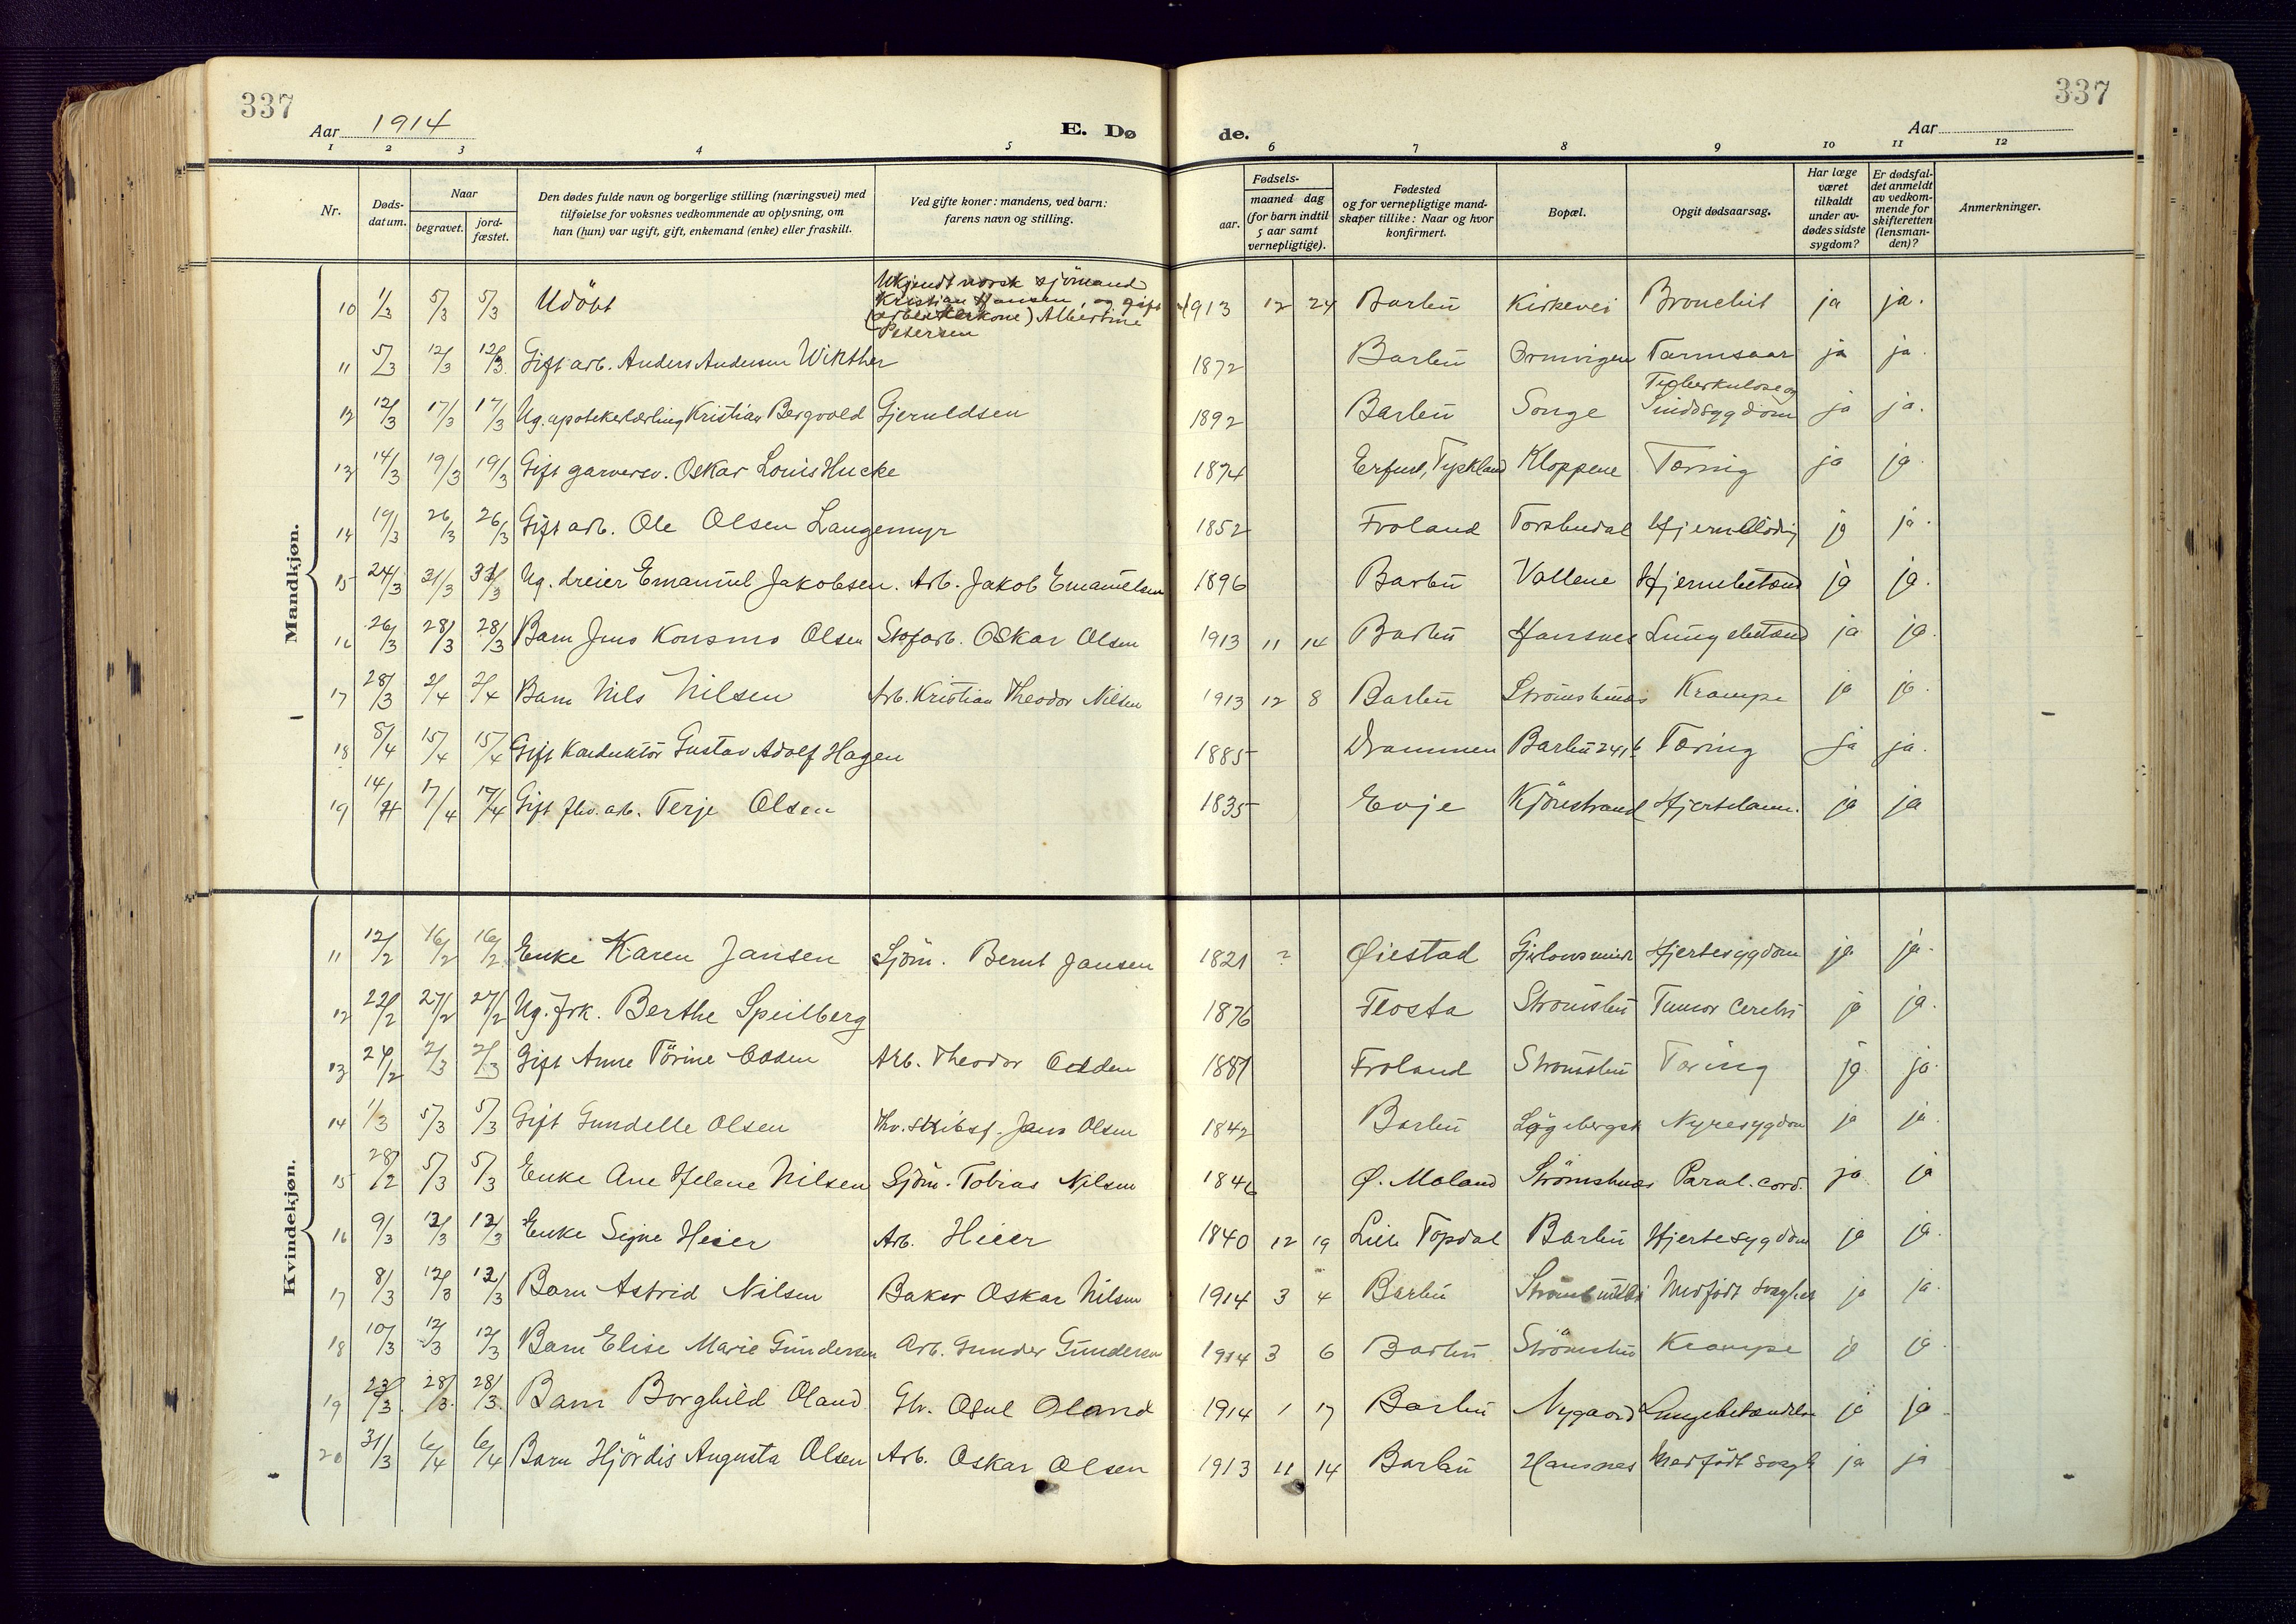 337
337
Aar 1914
E. Dø
de.
Aar
1 2 3 4 5 6 7 8 9 10 11 12
Nr.
Døds-
datum.
Naar
begravet.
jord-
fæstet.
Den dødes fulde navn og borgerlige stilling (næringsvei) med
tilføielse for voksnes vedkommende av oplysning, om
han (hun) var ugift, gift, enkemand (enke) eller fraskilt.
Ved gifte koner: mandens, ved barn:
farens navn og stilling.
Fødsels-
aar.
maaned dag
(for barn indtil
5 aar samt
vernepligtige).
Fødested
og for vernepligtige mand-
skaper tillike: Naar og hvor
konfirmert.
Bopæl.
Opgit dødsaarsag.
Har læge
været
tilkaldt
under av-
dødes sidste
sygdom?
Er dødsfal-
det anmeldt
av vedkom-
mende for
skifteretten
(lensman-
den)?
Anmerkninger.
Mandkjøn.
Ukjendt norsk sjömand
Kristian Hansen, og gift
(arbeiderkone) Albertine
Petersen
10 1/3 5/3 5/3 Udöbt 1913 12 24 Barbu Kirkevei Bronchit ja ja.
11 5/3 12/3 12/3 Gift arb. Anders Andersen Winther 1872 Barbu Tarmsaar ja ja.
12 12/3 17/3 17/3 Ug. apotekerlærling Kristian Bergvald Gjeruldsen 1892 Barbu Songe Tuberkulose og
Sindssygdom ja ja.
13 14/3 19/3 19/3 Gift garversv. Oskar Louis Hucke 1874 Erfurt, Tyskland Kloppene Tæring ja ja.
14 19/3 26/3 26/3 Gift arb. Ole Olsen Langemyr 1852 Froland Torsbudal Hjerneblödn ja ja.
15 24/3 31/3 31/3 Ug. dreier Emanuel Jakobsen. Arb. Jakob Emanuelsen 1896 Barbu Vollene Hjernebetænd ja ja.
16 26/3 28/3 28/3 Barn Jens Konsmo Olsen Oskar Olsen 1913 11 14 Barbu Hansnes Lungebetænd ja ja.
17 28/3 2/4 2/4 Barn Nils Nilsen Arb. Kristian Theodor Nilsen 1913 12 8 Barbu Strömsbunes Krampe ja ja.
18 8/4 15/4 15/4 Gift Konduktör Gustav Adolf Hagen 1885 Drammen Barbu 241 b Tæring ja ja.
19 14/4 17/4 17/4 Gift fhv. arb. Terje Olsen 1835 Evje Kjönstrand Hjertelam. ja ja
Kvindekjøn.
11 12/2 16/2 16/2 Enke Karen Jansen Sjöm. Bernt Jansen 1821 ? Øiestad Hjertesygdom ja ja.
12 22/2 27/2 27/2 Ug. frk. Berthe Speilberg 1876 Flosta Strömsbu Tumor cerebri ja ja.
13 24/2 2/3 2/3 Gift Anne Törine Odden Arb. Theodor Odden 1887 Froland Strömsbu Tæring ja ja.
14 1/3 5/3 5/3 Gift Gundelle Olsen Jens Olsen 1842 Barbu Nyresygdom ja ja.
15 28/2 5/3 5/3 Enke Ane Helene Nilsen Sjöm. Tobias Nilsen 1846 Ø. Moland Strömsbunes Paral. cord. ja ja
16 9/3 12/3 12/3 Enke Signe Heier Arb. Heier 1840 12 19 Lille Topdal Barbu Hjertesygdom ja ja.
17 8/3 12/3 12/3 Barn Astrid Nilsen Baker Oskar Nilsen 1914 3 4 Barbu Medfödt svaghet ja ja.
18 10/3 12/3 12/3 Barn Elise Marie Gundersen Arb. Gunder Gundersen 1914 3 6 Barbu Strömsbu Krampe ja ja.
19 23/3 28/3 28/3 Barn Borghild Oland Osul Oland 1914 1 17 Barbu Nygaard Lungebetændelse ja ja.
20 31/3 6/4 6/4 Barn Hjördis Augusta Olsen Arb. Oskar Olsen 1913 11 14 Barbu Hansnes Medfödt svagh ja ja